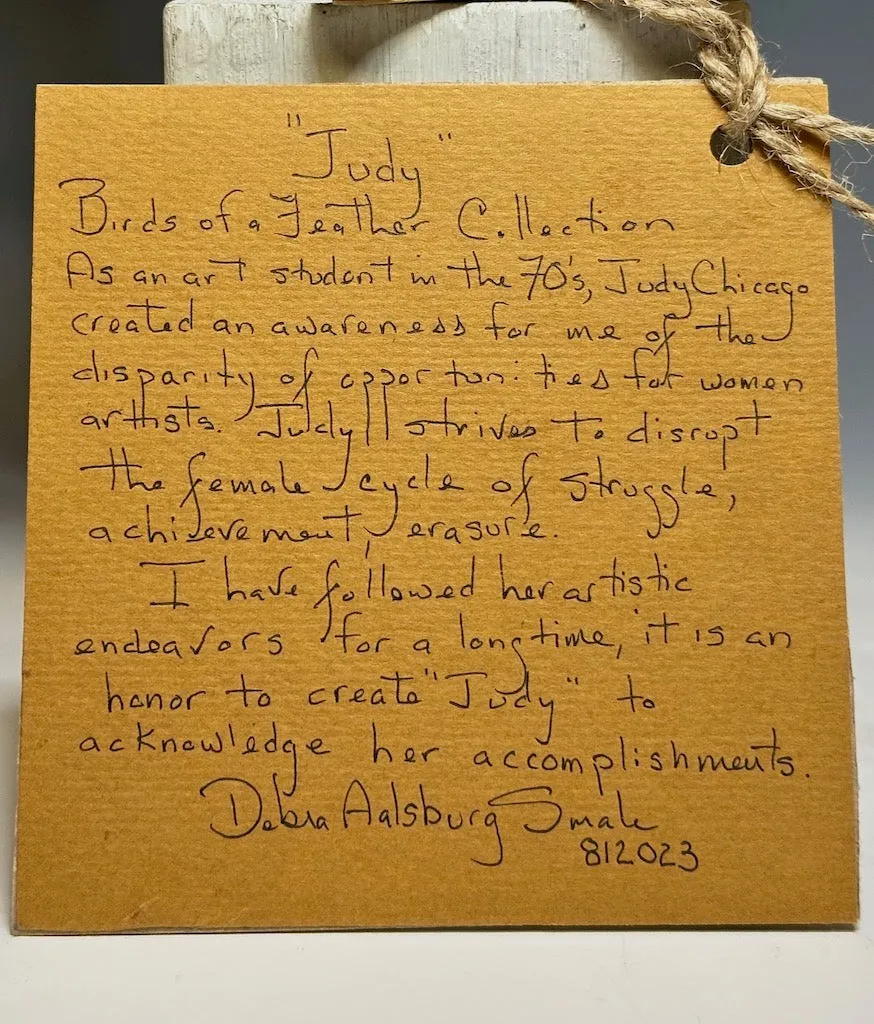 "Judy"
Birds of a Feather Collection
As an art student in the 70's, Judy Chicago
created an awareness for me of the
disparity of opportunities for women
artists. Judy strives to disrupt
the female cycle of struggle,
achievement, erasure.
I have followed her artistic
endeavors for a long time, it is an
honor to create "Judy" to
acknowledge her accomplishments.
Debra Aalsburg Smale
812023